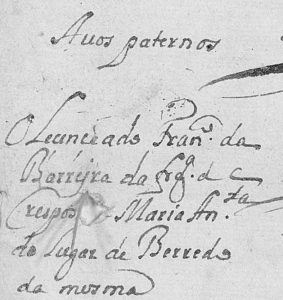 Avos paternos
O Lecnceado Fran.co da
Barreyra da frg.a de
Crespos Maria An.ta
do lugar de Berredo
da mesma